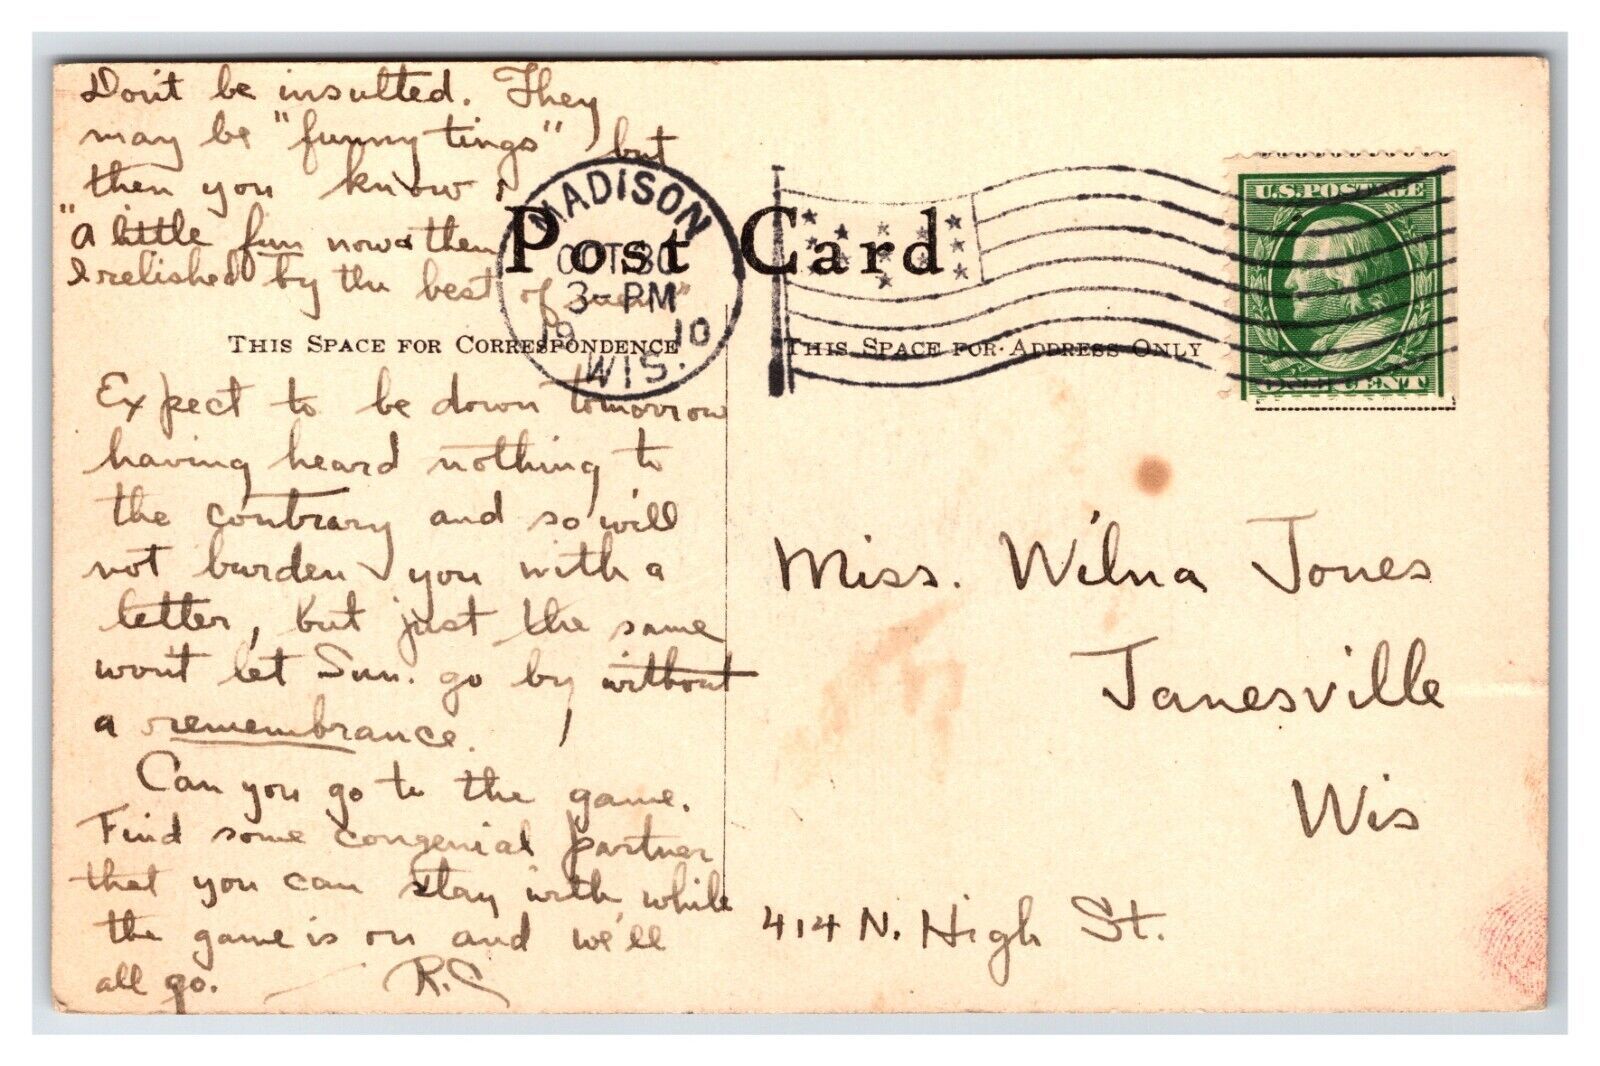 Don't be insulted. They
may be "funny tings" but
then you know,
"A little fun now & then
Is relished by the best of men"
MADISON
OCT 30
3 - PM
1910
WIS.
Post Card
U.S. POSTAGE
ONE CENT
THIS SPACE FOR CORRESPONDENCE
THIS SPACE FOR ADDRESS ONLY
Expect to be down tomorrow
having heard nothing to
the contrary and so will
not burden you with a
letter, but just the same
won't let Sun. go by without
a remembrance.
Can you go to the game.
Find some congenial partner
that you can stay with while
the game is on and we'll
all go. — R.S
Miss. Wilma Jones
Janesville
Wis
414 N. High St.